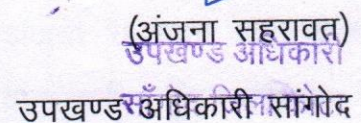 (अंजना सहरावत)
उपखण्ड अधिकारी
उपखण्ड अधिकारी सांगोद